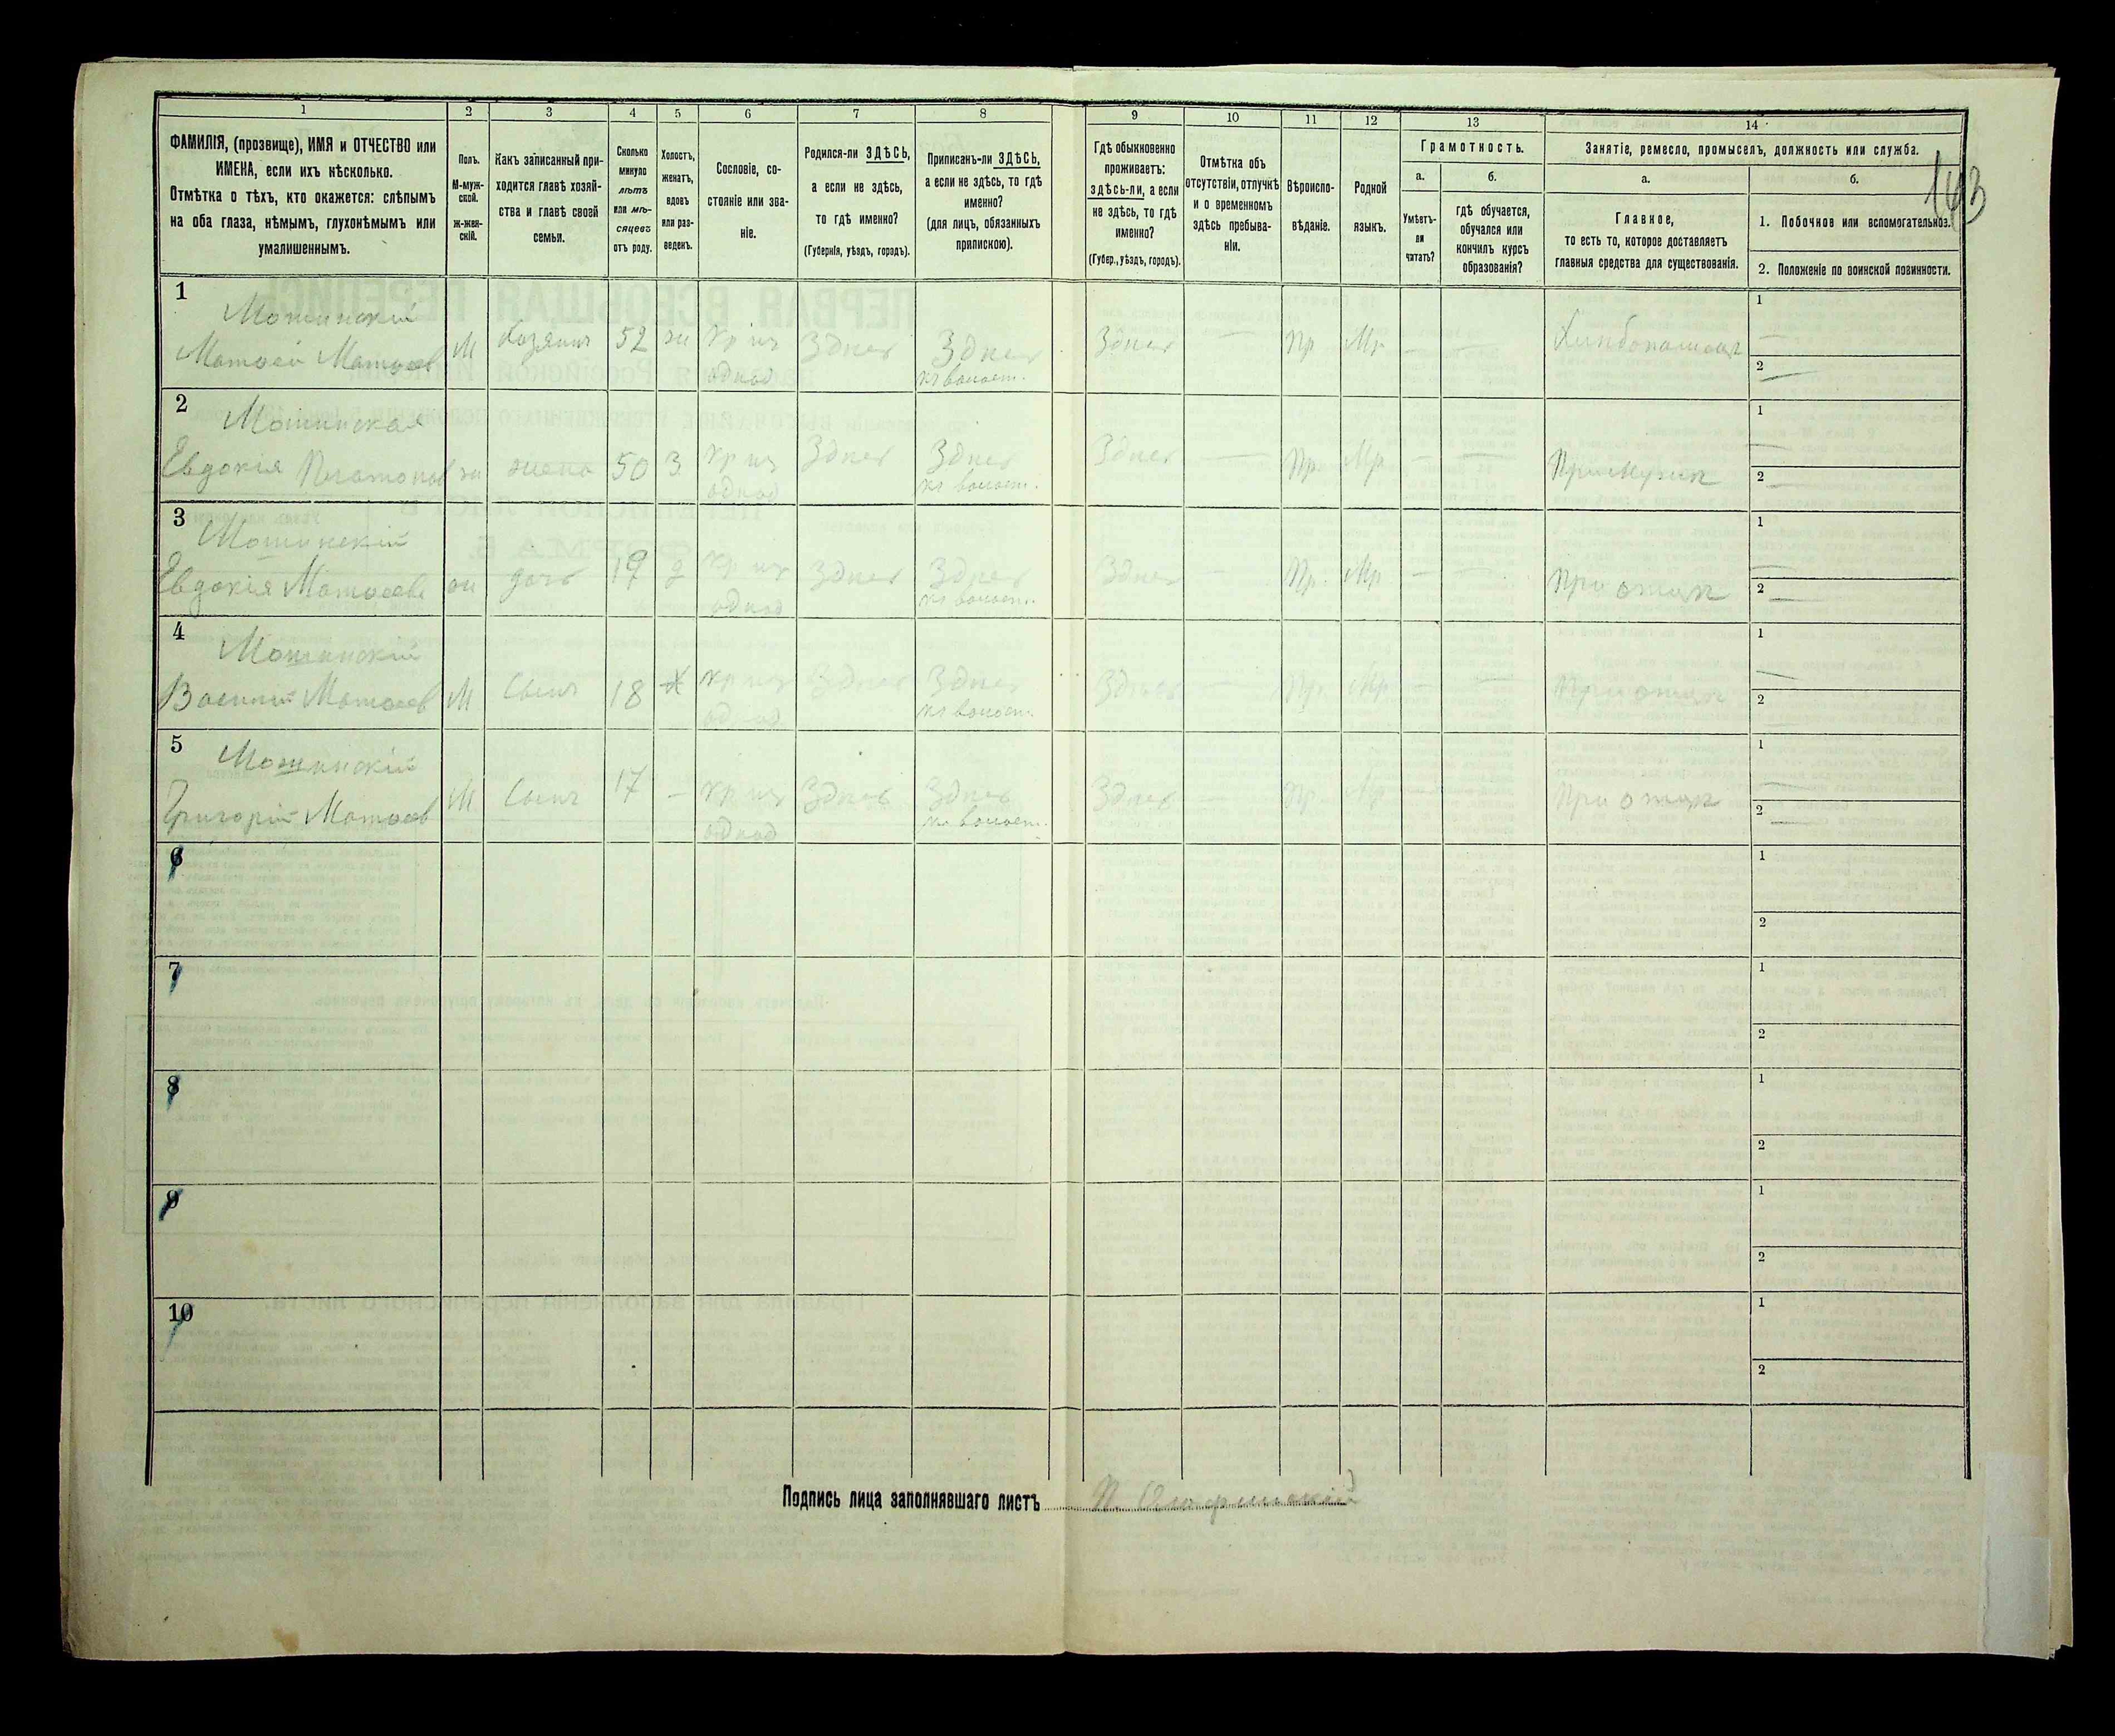 1 2 3 4 5 6 7 8 9 10 11 12 13 14
143
ФАМИЛІЯ, (прозвище), ИМЯ и ОТЧЕСТВО или
ИМЕНА, если ихъ нѣсколько.
Отмѣтка о тѣхъ, кто окажется: слѣпымъ
на оба глаза, нѣмымъ, глухонѣмымъ или
умалишеннымъ.
Полъ.
М-муж-
ской.
ж-жен-
скій.
Какъ записанный при-
ходится главѣ хозяй-
ства и главѣ своей
семьи.
Сколько
минуло
лѣтъ
или мѣ-
сяцевъ
отъ роду.
Холостъ,
женатъ,
вдовъ
или раз-
веденъ.
Сословіе, со-
стояніе или зва-
ніе.
Родился-ли ЗДѢСЬ,
а если не здѣсь,
то гдѣ именно?
(Губернія, уѣздъ, городъ).
Приписанъ-ли ЗДѢСЬ,
а если не здѣсь, то гдѣ
именно?
(для лицъ, обязанныхъ
припискою).
Гдѣ обыкновенно
проживаетъ:
здѣсь-ли, а если
не здѣсь, то гдѣ
именно?
(Губер., уѣздъ, городъ).
Отмѣтка объ
отсутствіи, отлучкѣ
и о временномъ
здѣсь пребыва-
ніи.
Вѣроиспо-
вѣданіе.
Родной
языкъ.
Грамотность.
а.
Умѣетъ-
ли
читать?
б.
гдѣ обучается,
обучался или
кончилъ курсъ
образованія?
Занятіе, ремесло, промыселъ, должность или служба.
а.
Главное,
то есть то, которое доставляетъ
главныя средства для существованія.
б.
1. Побочное или вспомогательное.
2. Положеніе по воинской повинности.
1
Мошинскій
Матвей Матвеев М хозяинъ 52 ж Кр изъ Здесь Здесь Здесь — Пр Мр — — Хлебопашец
однод къ волост.
1 —
2 —
2
Мошинская
Евдокія Платонов ж жена 50 З Кр из Здесь Здесь Здесь — Пр Мр — — При мужи
однод къ волост.
1 —
2 —
3
Мошинскій
Евдокія Матвеева ж дочь 19 д Кр из Здесь Здесь Здесь — Пр. Мр — — При отце
однод къ волост.
1 —
2 —
4
Мошинскій
Василий Матвеев М Сынъ 18 Х Кр из Здесь Здесь Здесь — Пр. Мр — — При отце
однод къ волост.
1 —
2
5
Мошинскій
Григорій Матвеев М Сынъ 17 — Кр из Здесь Здесь Здесь — Пр Мр — — При отце
однод къ волост.
1 —
2 —
6
1
2
7
1
2
8
1
2
9
1
2
10
1
2
Подпись лица заполнявшаго листъ